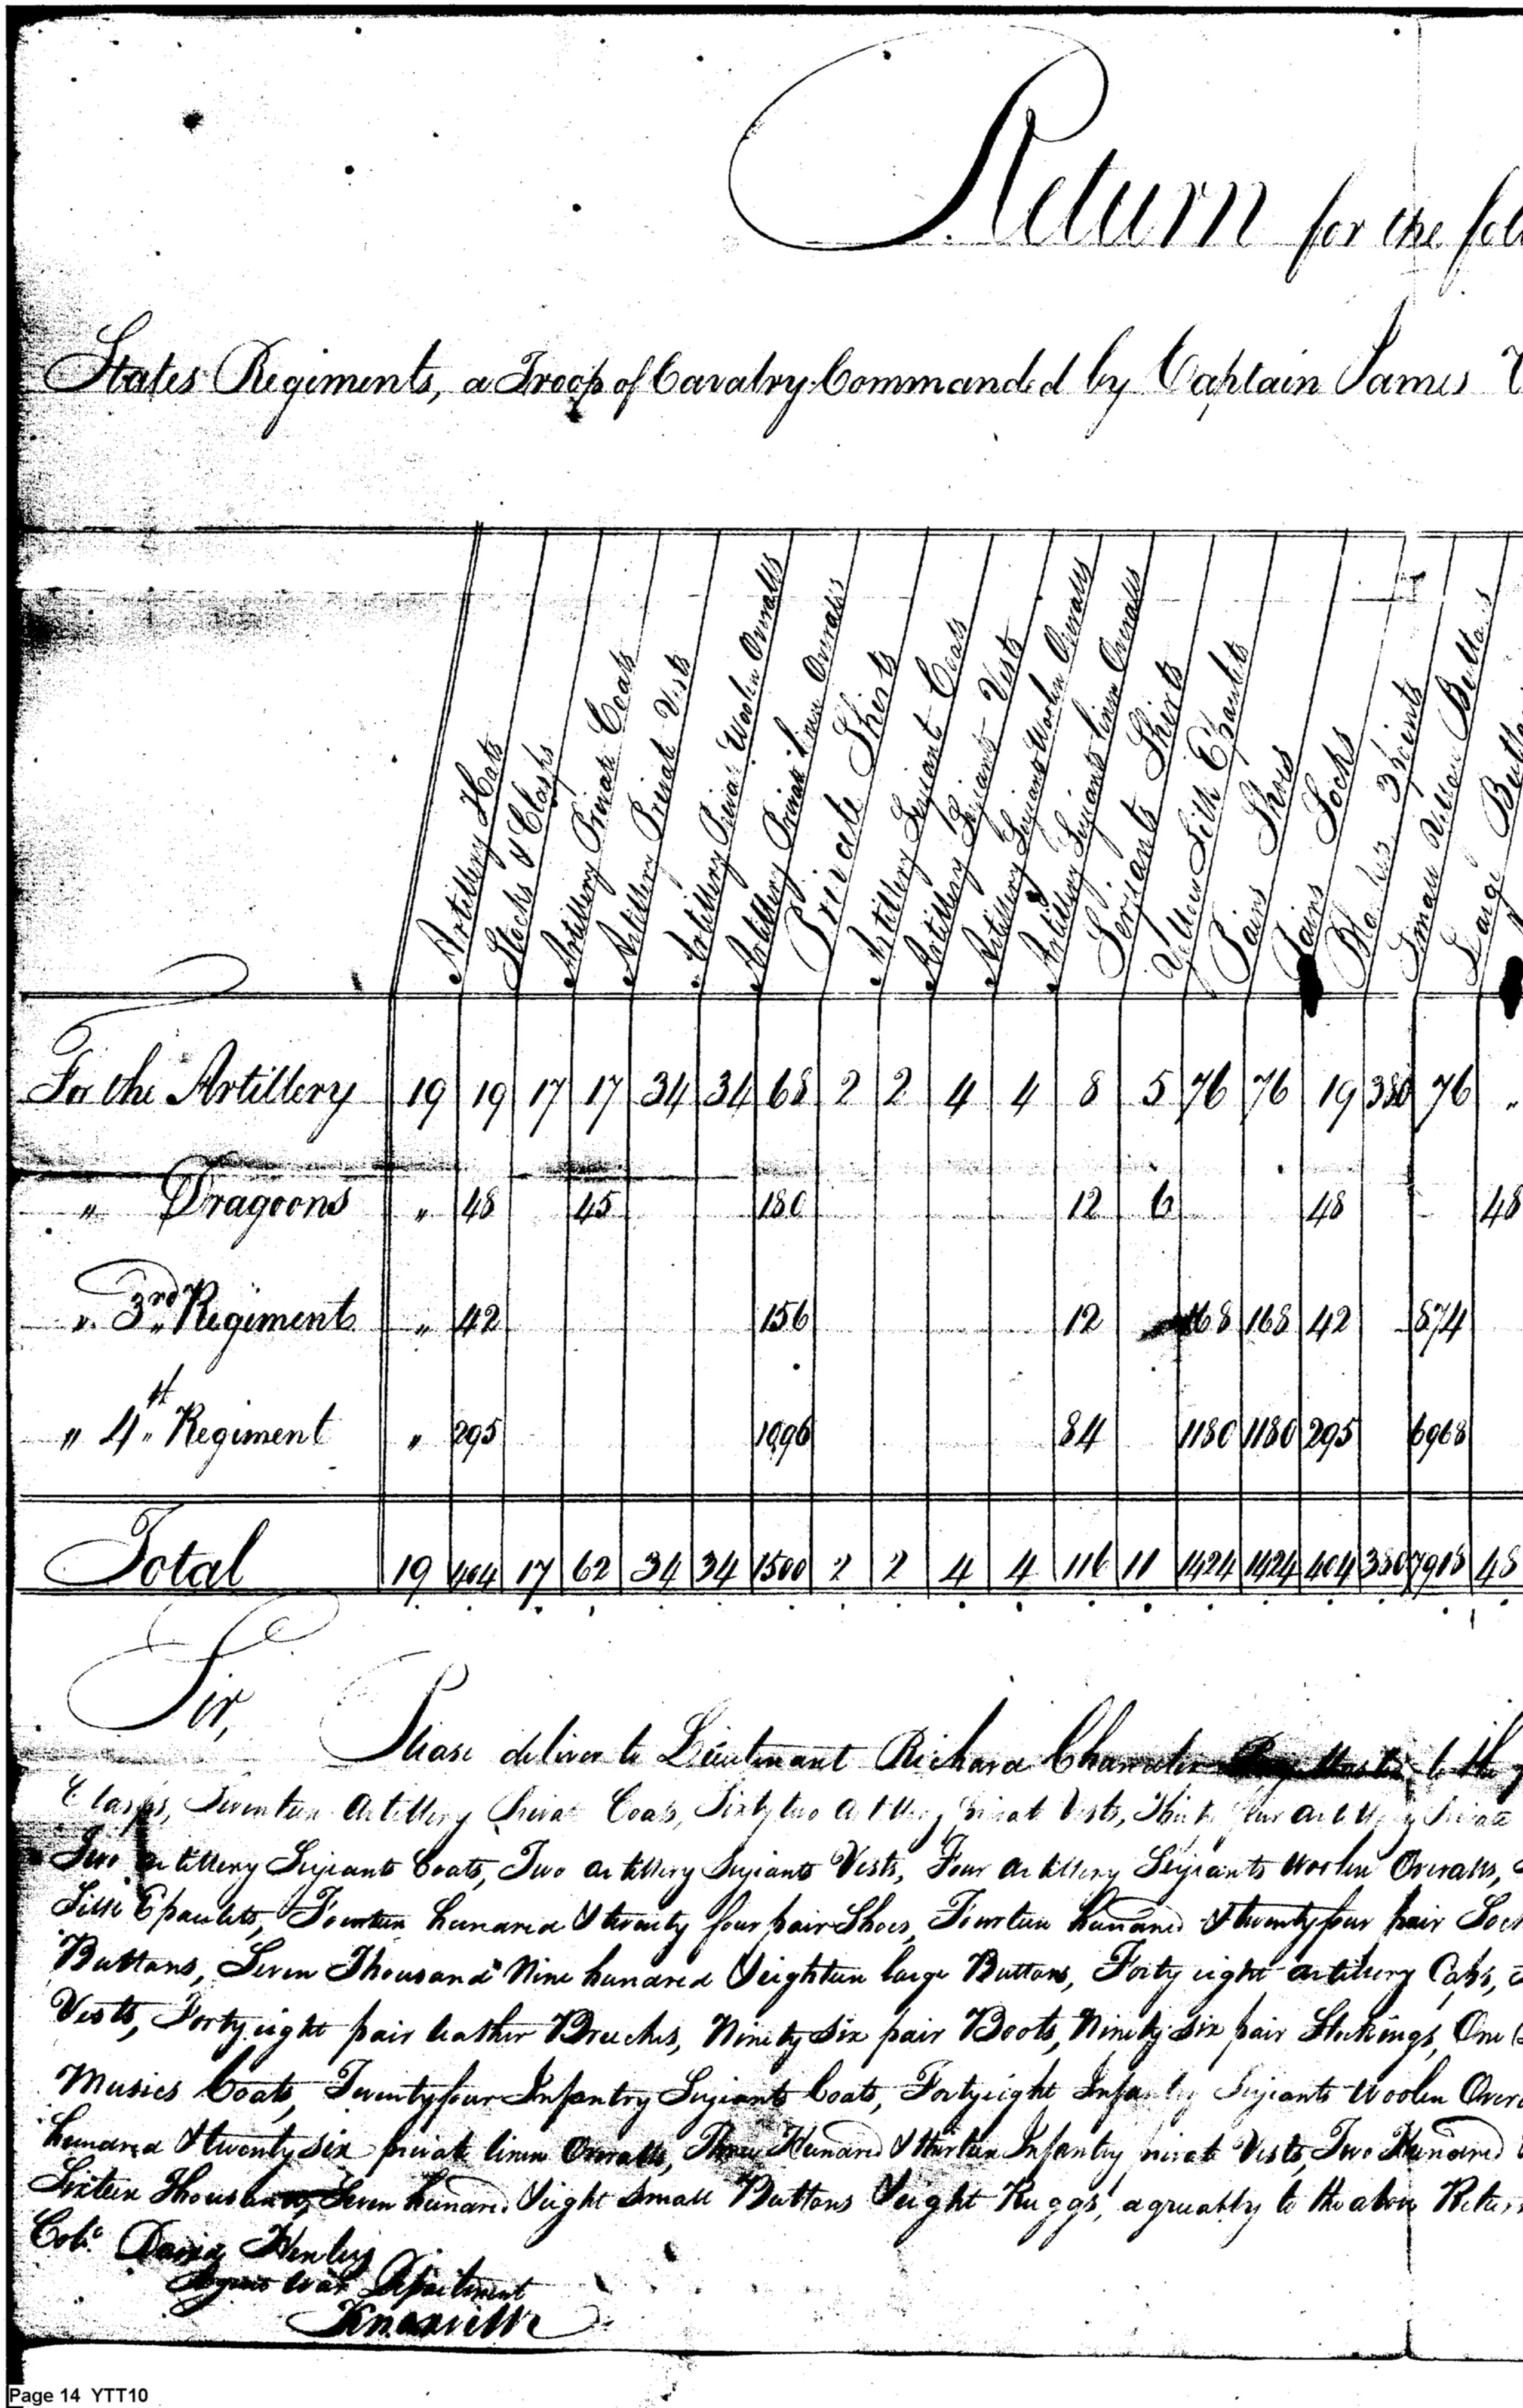 Return for the fol
States Regiments, a Troop of Cavalry Commanded by Captain James
Artillery Hats
Stocks & Clasps
Artillery Private Coats
Artillery Private Vests
Artillery Private Woolen Overalls
Artillery Private linen Overalls
Private Shirts
Artillery Serjeant Coats
Artillery Serjeants Vests
Artillery Serjeants Woolen Overalls
Artillery Serjeants linen Overalls
Serjeants Shirts
Yellow Silk Epaulets
Pairs Shoes
Pairs Socks
Blankets 3 points
Small Buttons
Large Butto
For the Artillery 19 19 17 17 34 34 68 2 2 4 4 8 5 76 76 19 380 76 "
" Dragoons " 48 45 180 12 6 48 48
" 3rd Regiment " 42 156 12 168 168 42 874
" 4th Regiment " 295 1096 84 1180 1180 295 6968
Total 19 404 17 62 34 34 1500 2 2 4 4 116 11 1424 1424 404 380 7918 48
Sir,
Please deliver to Lieutenant Richard to the
Clasps, Seventeen Artillery Private Coats, Sixty two Artillery Private Vests, Thirty four Artillery Private
Two artillery Serjeants Coats, Two artillery Serjeants Vests, Four artillery Serjeants Woolen Overalls,
Silk Epaulets, Fourteen hundred & twenty four pair Shoes, Fourteen hundred & twenty four pair Soc
Buttons, Seven Thousand Nine hundred & eighteen large Buttons, Forty eight artillery Caps,
Vests, Forty eight pair leather Breeches, Ninety Six pair Boots, Ninety Six pair Stockings, One
Musics Coats, Twenty four Infantry Serjeants Coats, Forty eight Infantry Serjeants Woolen Over
hundred & twenty six private linen Overalls, Three Hundred & thirteen Infantry private Vests, Two Hundred
Sixteen Thousand Seven hundred & eight Small Buttons Eight Ruggs, agreeably to the above Return
Colo. David Henley
Agent War Department
Knoxville
Page 14 YTT10